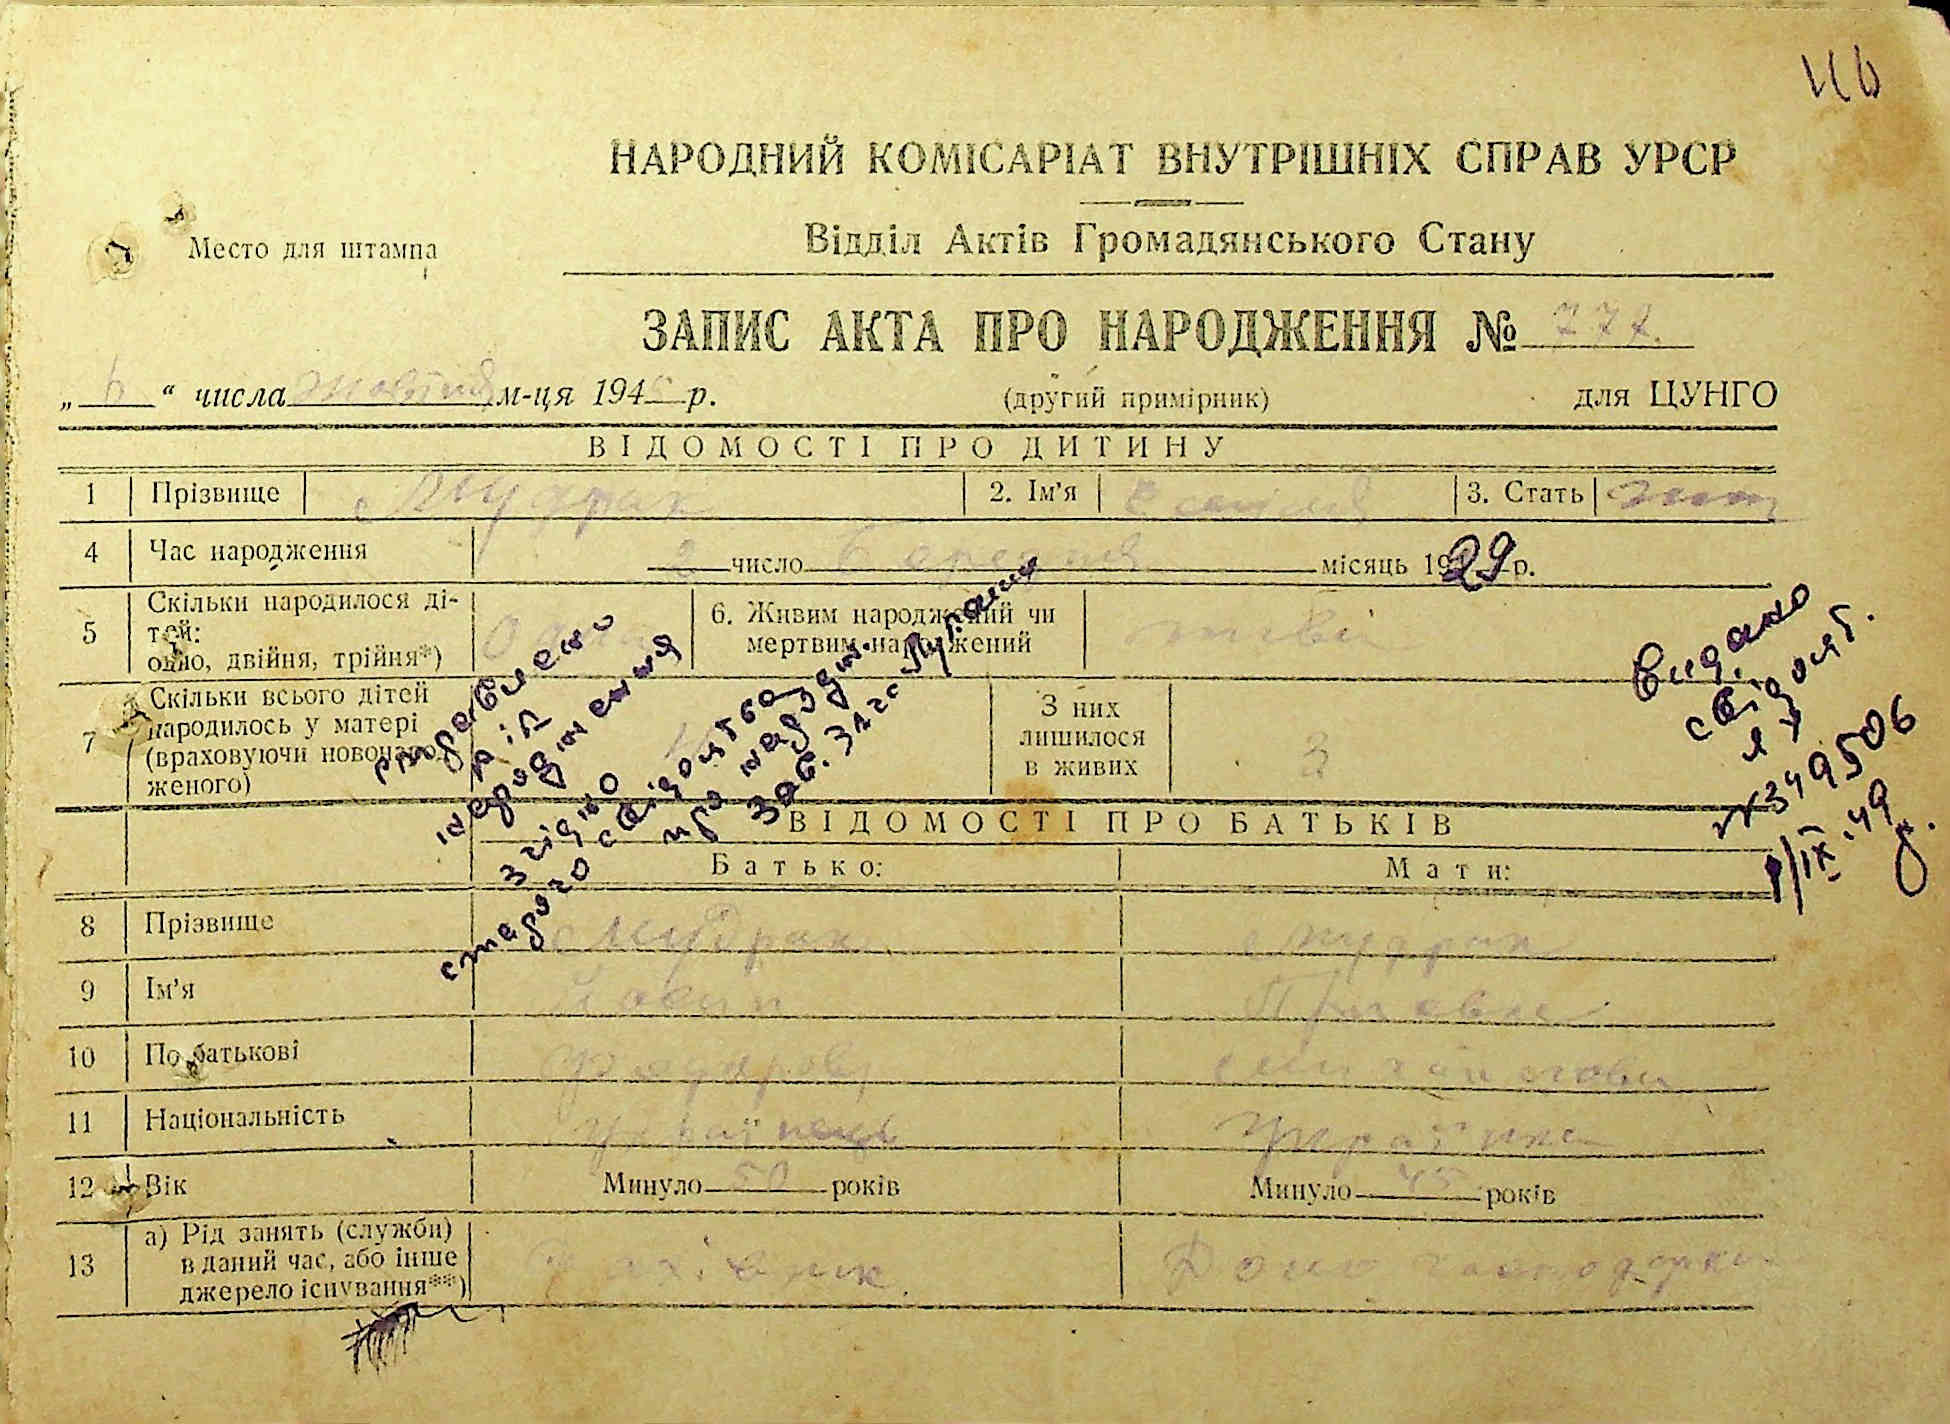 НАРОДНИЙ КОМІСАРІАТ ВНУТРІШНІХ СПРАВ УРСР
Место для штампа
Відділ Актів Громадянського Стану
ЗАПИС АКТА ПРО НАРОДЖЕННЯ № 777.
„ 6 “ числа жовтня м-ця 194 р.
(другий примірник)
для ЦУНГО
ВІДОМОСТІ ПРО ДИТИНУ
1 Прізвище Мудрак 2. Ім'я 3. Стать
4 Час народження 2 число березня місяць 1929 р.
5 Скільки народилося ді-
тей:
одно, двійня, трійня*)
6. Живим народжений чи
мертвим народжений
живі
7 Скільки всього дітей
народилось у матері
(враховуючи новонаро-
женого)
З них
лишилося
в живих
3
виправлено
рік
народження
згідно
старого свідоцтва
про народжен.
зав. Загс
Видано
свідоцт.
ЯУ
№349506
1/IX.49
ВІДОМОСТІ ПРО БАТЬКІВ
Батько: Мати:
8 Прізвище Мудрак Мудрак
9 Ім'я Йосип
10 По батькові Федорович
11 Національність українець Українка
12 Вік Минуло 50 років Минуло 45 років
13 а) Рід занять (служби)
в даний час, або інше
джерело існування**)
Домогосподарка